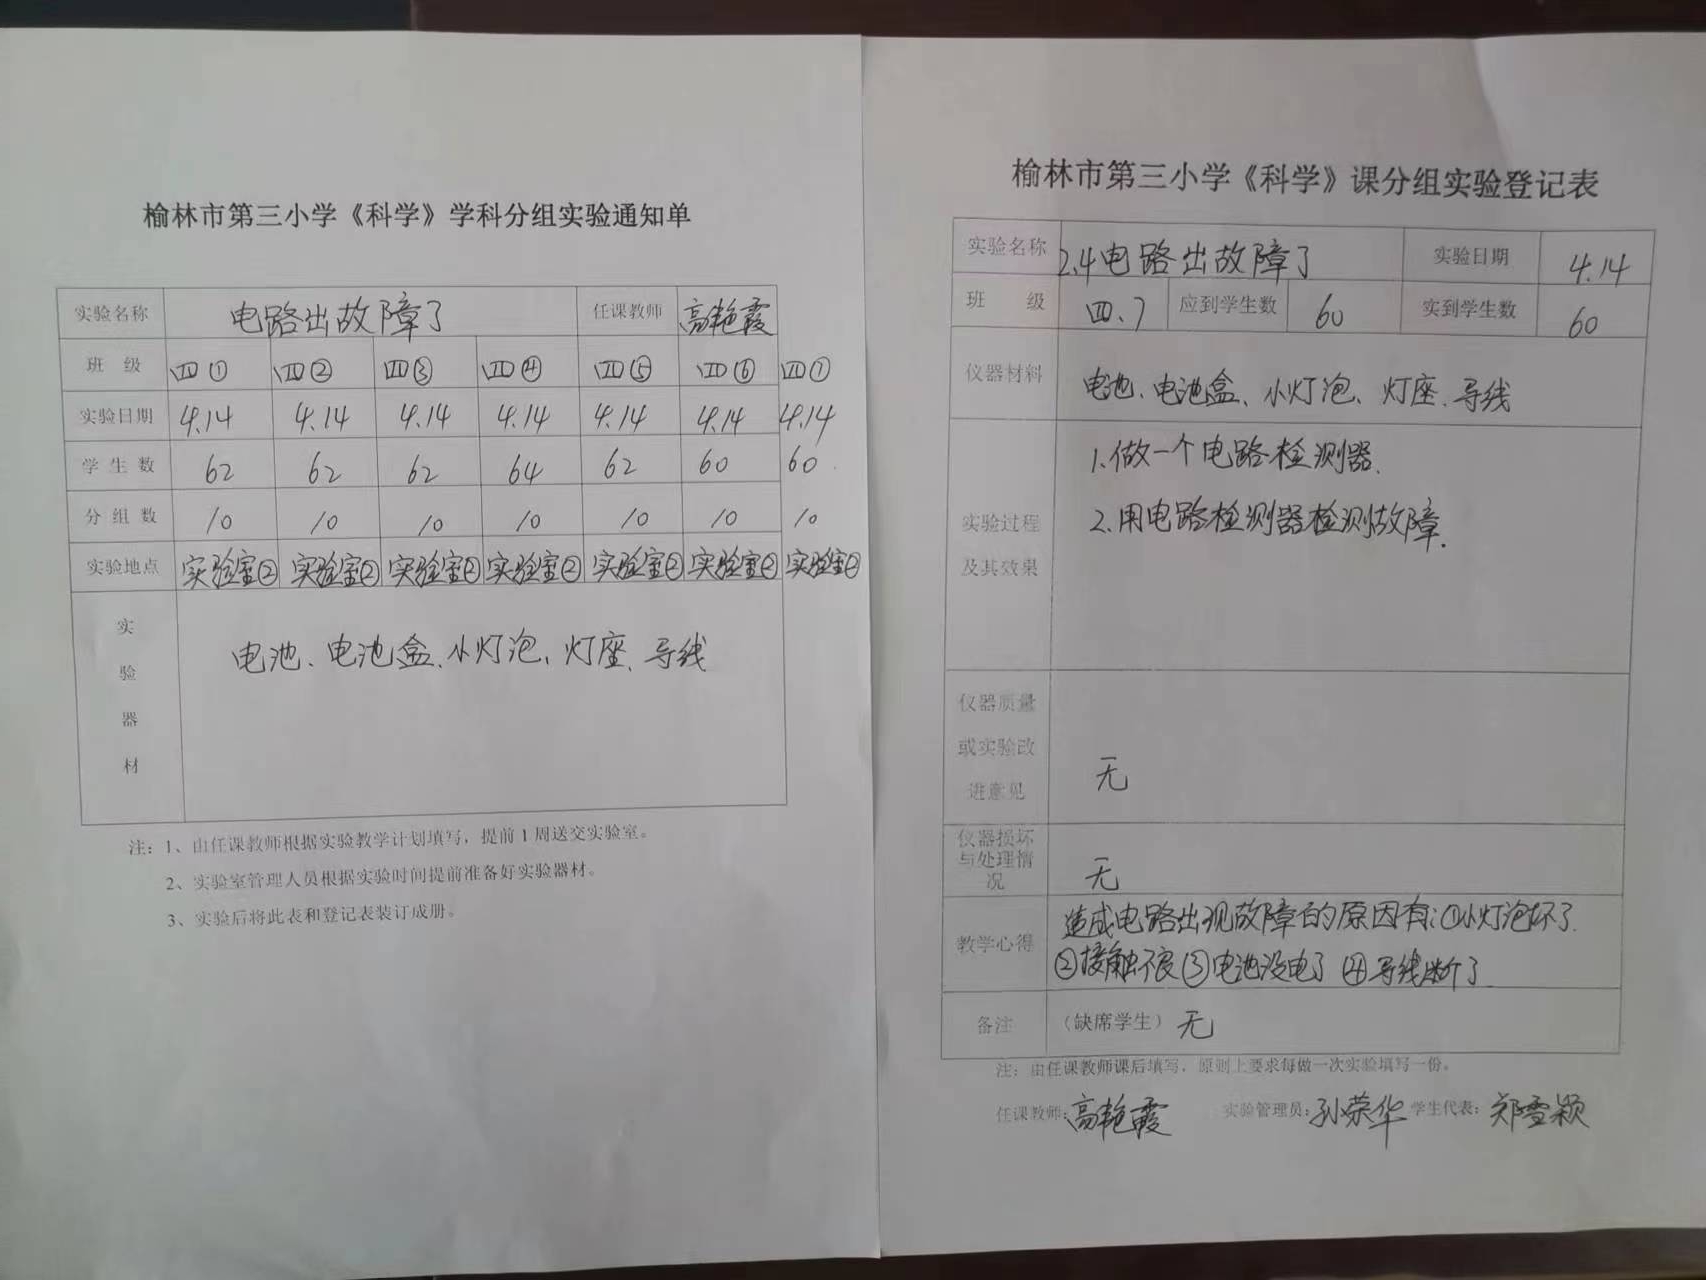 榆林市第三小学《科学》学科分组实验通知单
实验名称 电路出故障了 任课教师 高艳霞
班 级 四① 四② 四③ 四④ 四⑤ 四⑥ 四⑦
实验日期 4.14 4.14 4.14 4.14 4.14 4.14 4.14
学生数 62 62 62 64 62 60 60
分组数 10 10 10 10 10 10 10
实验地点 实验室② 实验室② 实验室② 实验室② 实验室② 实验室② 实验室②
实验器材
电池、电池盒、小灯泡、灯座、导线
注：1、由任课教师根据实验教学计划填写，提前1周送交实验室。
2、实验室管理人员根据实验时间提前准备好实验器材。
3、实验后将此表和登记表装订成册。
榆林市第三小学《科学》课分组实验登记表
实验名称 2.4电路出故障了 实验日期 4.14
班 级 四、7 应到学生数 60 实到学生数 60
仪器材料 电池、电池盒、小灯泡、灯座、导线
实验过程及其效果
1.做一个电路检测器.
2.用电路检测器检测故障.
仪器质量或实验改进意见 无
仪器损坏与处理情况 无
教学心得 造成电路出现故障的原因有:①小灯泡坏了.
②接触不良③电池没电了 ④导线断了
备注 （缺席学生）无
注：由任课教师课后填写，原则上要求每做一次实验填写一份。
任课教师:高艳霞 实验管理员:孙荣华 学生代表:郑雪颖